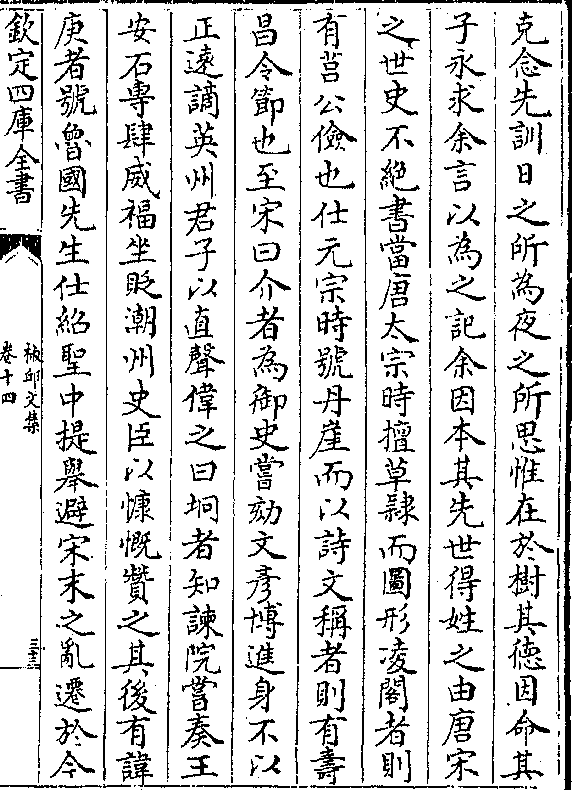 克念先訓日之所為夜之所思惟在於樹其德因命其
子永求余言以為之記余因本其先世得姓之由唐宋
之世史不絶書當唐太宗時擅草隸而圖形凌閣者則
有莒公儉也仕元宗時號丹崖而以詩文稱者則有壽
昌令節也至宋曰介者為御史嘗劾文彥博進身不以
正遠謫英州君子以直聲偉之曰坰者知諫院嘗奏王
安石專肆威福坐貶潮州史臣以慷慨贊之其後有諱
庚者號魯國先生仕紹聖中提舉避宋末之亂遷於今
欽定四庫全書
卷十四
三十三